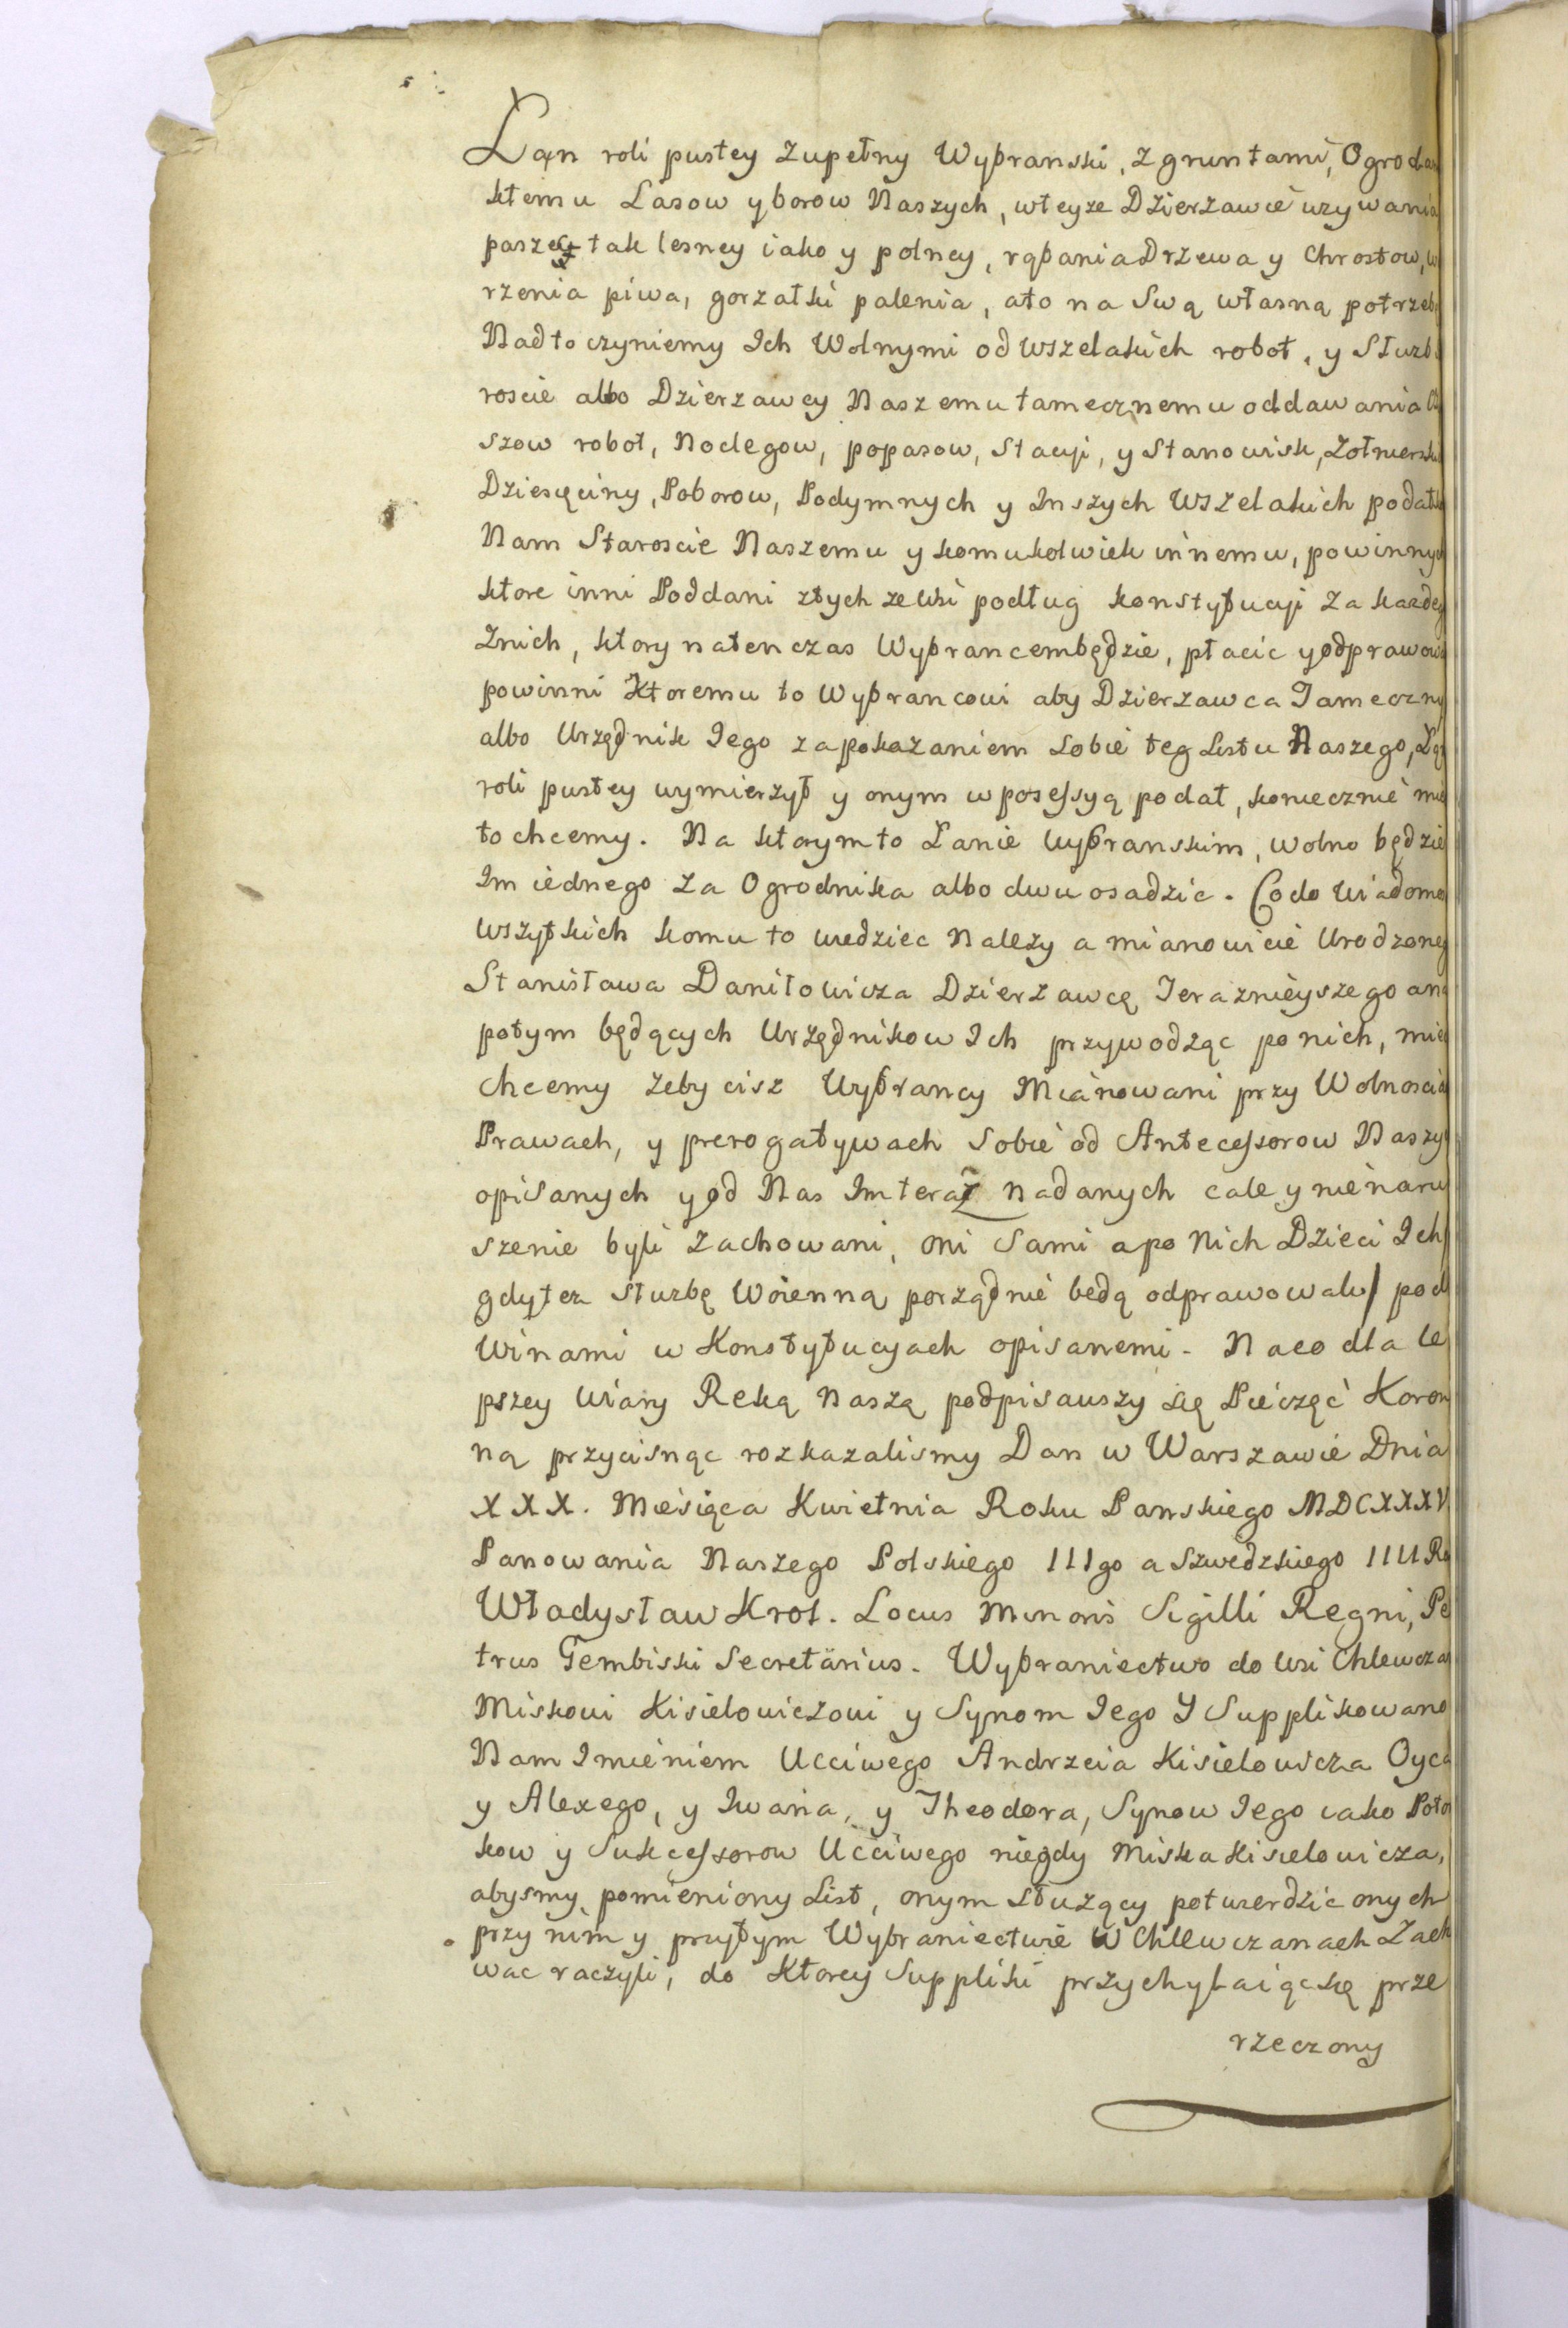 Łan roli pustey zupełny Wybranski, z gruntami, Ogroda
ktemu Lasow y borow Naszych, wteyze Dzierzawie uzywania
paszey tak lesney iako y polney, rąbania Drzewa y Chrostow, w
rzenia piwa, gorzałki palenia, ato na Swą własną potrzeb
Nadto czyniemy Ich Wolnymi od wszelakich robot, y Służb
roscie albo Dzierzawcy Naszemu tamecznemu oddawania
szow robot, Noclegow, popasow, Stacyi, y Stanowisk, Zołniersk
Dziesięciny, Poborow, Podymnych y Inszych wszelakich podatk
Nam Staroscie Naszemu y komukolwiek innemu, powinnych
ktore inni Poddani z tych ze wsi podług konstytucyi za kazdeg
Znich, ktory natenczas Wybrancem będzie, płacic y odprawowa
powinni Ktoremu to Wybrancowi aby Dzierzawca Tameczny
albo Urzędnik Iego za pokazaniem Sobie teg Listu Naszego, Łą
roli pustey wymierzył y onym w possessyą podał, koniecznie mie
to chcemy. Na ktorym to Łanie Wybranskim, wolno będzie
Im iednego za Ogrodnika albo dwu osadzic. Co do Wiadomo
wszytkich komu to wiedziec Nalezy a mianowicie Urodzoneg
Stanisława Daniłowicza Dzierzawcę Teraznieyszego ana
potym będących Urzędnikow Ich przywodząc po nich, miec
chcemy zeby cisz Wybrancy Mianowani przy Wolnosciac
Prawach, y prerogatywach Sobie od Antecessorow Naszy
opisanych y od Nas Im teraz nadanych cale y nienaru
szenie byli Zachowani, oni Sami a po Nich Dzieci Ich
gdy tez służbę Woienną porządnie będą odprawowali/ pod
Winami w Konstytucyach opisanemi. Naco dla le
pszey Wiary Ręką Naszą podpisawszy się Pieczęć Koron
ną przycisnąc rozkazalismy Dan w Warszawie Dnia
XXX. Miesiąca Kwietnia Roku Panskiego MDCXXXV
Panowania Naszego Polskiego IIIgo a Szwedzkiego IIII Ro
Władysław Krol. Locus Minoris Sigilli Regni, Pe
trus Gembiski Secretarius. Wybraniectwo do wsi Chlewcza
Miskowi Kisielowiczowi y Synom Iego Y Supplikowano
Nam Imieniem Ucciwego Andrzeia Kisielowicza Oyca
y Alexego, y Iwana, y Theodora, Synow Iego iako Poto
kow y Sukcessorow Ucciwego niegdy Miska Kisielowicza,
abysmy pomieniony List, onym służący potwierdzic onych
przy nim y przytym Wybraniectwie w Chlewczanach Zach
wac raczyli, do Ktorey Suppliki przychylaiąc się prze
rzeczony